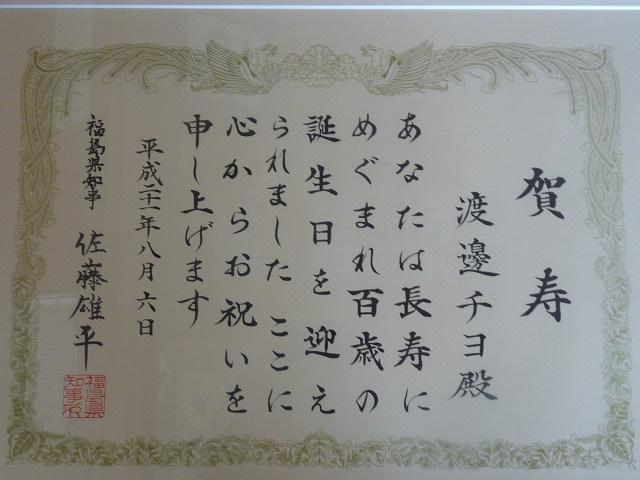 賀寿
渡邊チヨ殿
あなたは長寿に
めぐまれ百歳の
誕生日を迎え
られました ここに
心からお祝いを
申し上げます
平成二十一年八月六日
福島県知事 佐藤雄平